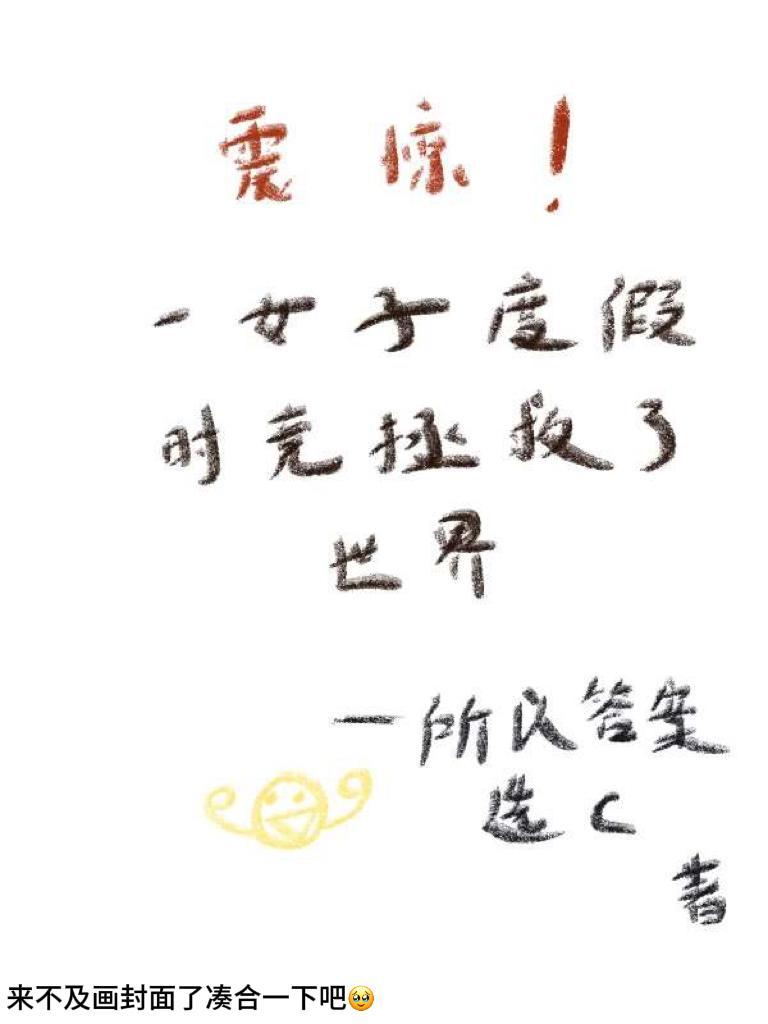 震惊！
一女子度假
时竟拯救了
世界
—所以答案
选C
著
来不及画封面了凑合一下吧🥹